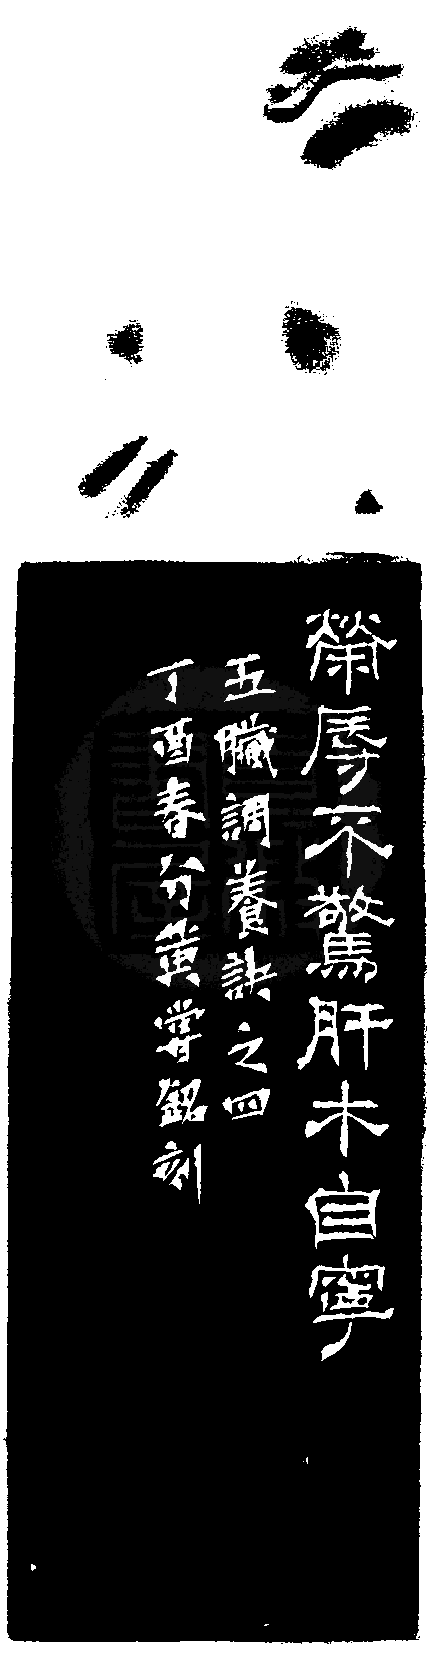 榮辱不驚肝木自寧
五臟調養訣之四
丁酉春分黃嘗銘刻